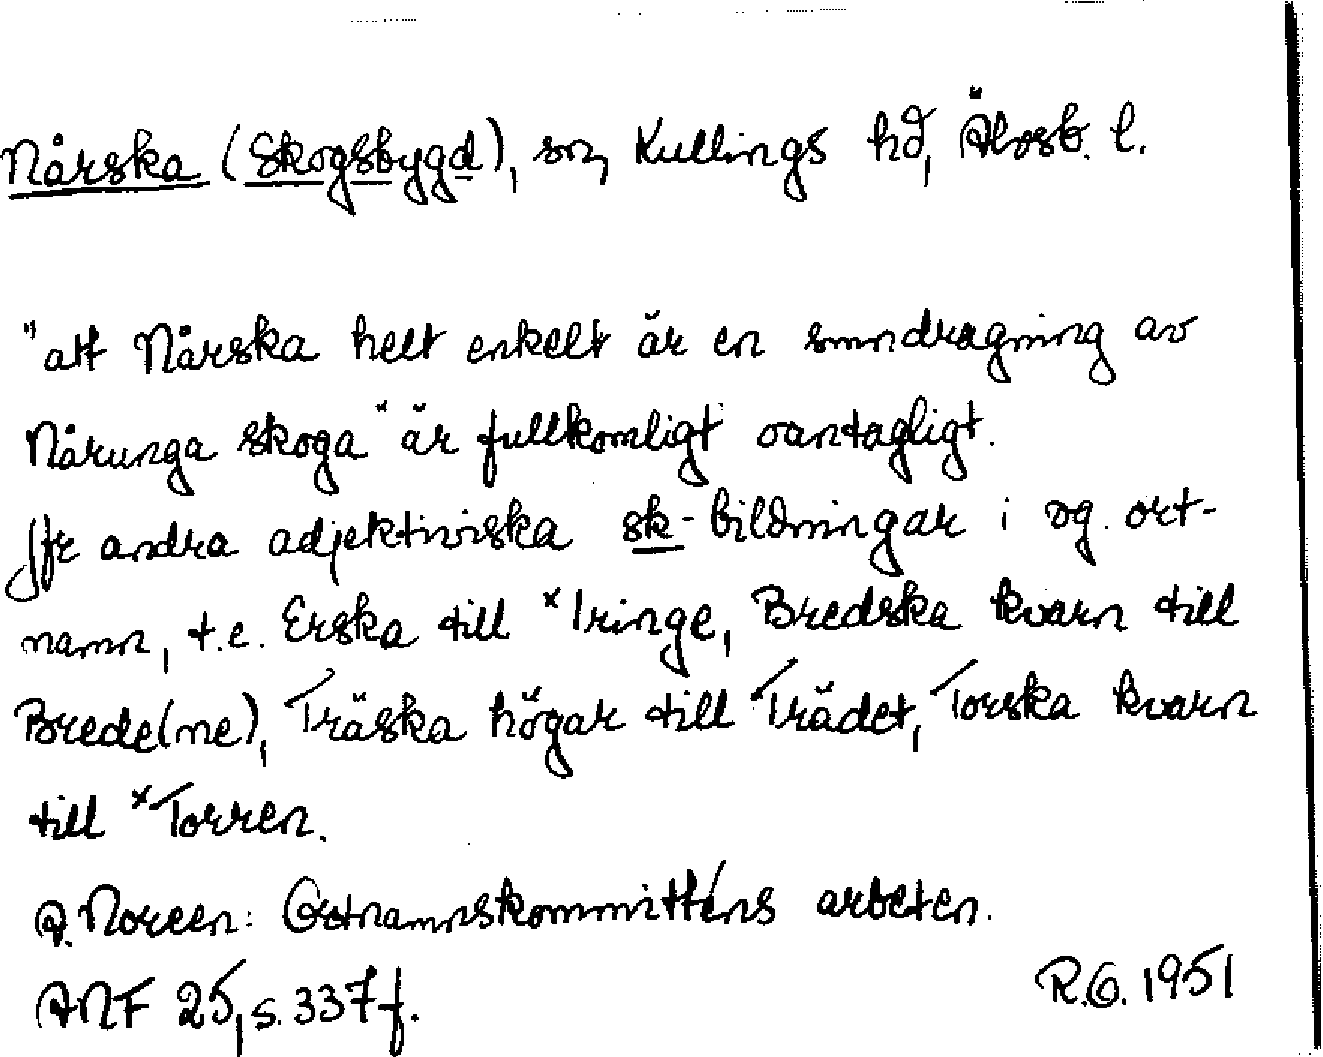 Nårska (Skogsbygd), sn, Kullings hd, Älvsb. l.
"att Nårska helt enkelt är en smndragning av
Nårunga skoga" är fullkomligt oantagligt.
Jfr andra adjektiviska sk-bildningar i vg. ort-
namn, t.e. Erska till *Iringe, Bredska kvarn till
Brede(ne), Träska högar till Trädet, Torska kvarn
till *Torren.
A. Noreen: Ortnamnskommitténs arbeten.
ANF 25, s. 337 f.
R.O. 1951